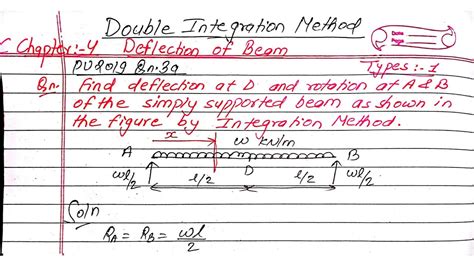 Double Integration Method
Date
Page
Chapter:-4 Deflection of Beam
PU2019 Q.n.3a Types:-1
Q.n. Find deflection at D and rotation at A & B
of the simply supported beam as shown in
the figure by Integration Method.
x w kN/m
A B
wl/2 l/2 D l/2 wl/2
Soln
RA = RB = wl/2